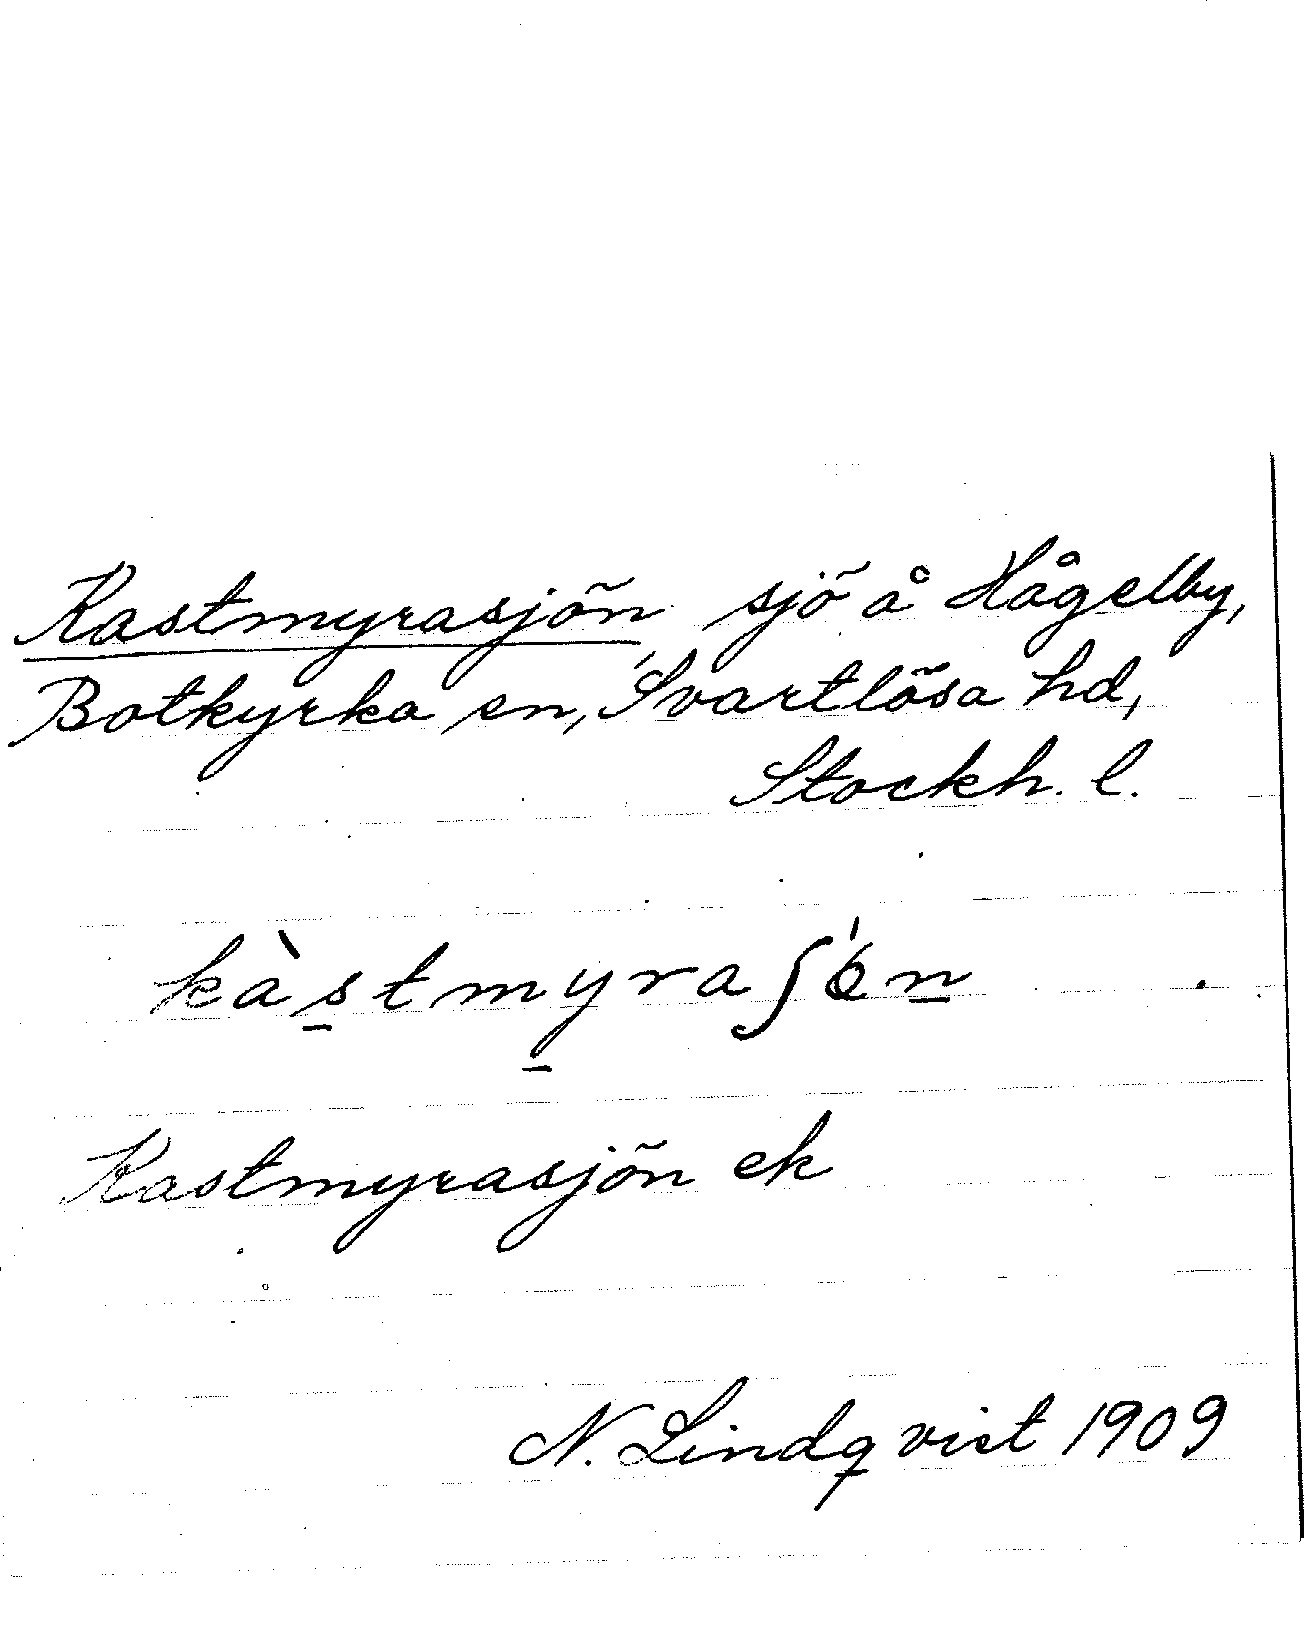 Kastmyrasjön, sjö å Hågelby,
Botkyrka sn, Svartlösa hd,
Stockh. l.
kàstmyraʃǿn
Kastmyrasjön ek
N. Lindqvist 1909